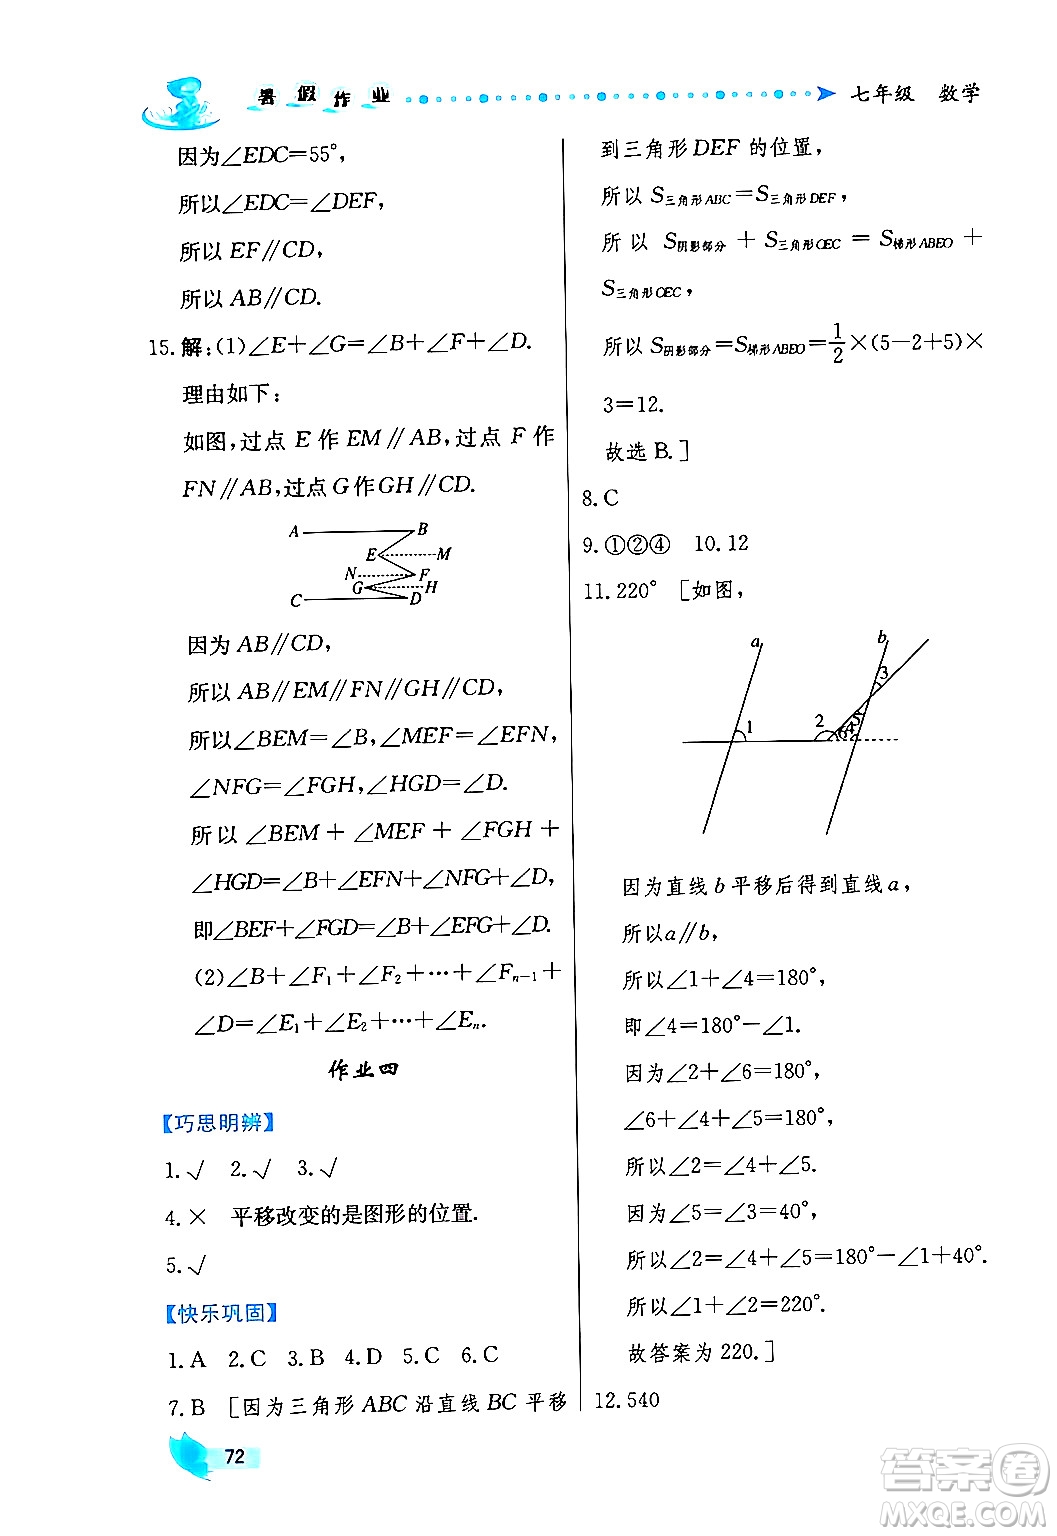 暑假作业
七年级 数学
因为∠EDC=55°,
所以∠EDC=∠DEF,
所以 EF∥CD,
所以 AB∥CD.
15.解:(1)∠E+∠G=∠B+∠F+∠D.
理由如下:
如图,过点 E 作 EM∥AB,过点 F 作
FN∥AB,过点 G 作 GH∥CD.
A
B
E
M
N
F
G
H
C
D
因为 AB∥CD,
所以 AB∥EM∥FN∥GH∥CD,
所以∠BEM=∠B,∠MEF=∠EFN,
∠NFG=∠FGH,∠HGD=∠D.
所以∠BEM+∠MEF+∠FGH+
∠HGD=∠B+∠EFN+∠NFG+∠D,
即∠BEF+∠FGD=∠B+∠EFG+∠D.
(2)∠B+∠F₁+∠F₂+…+∠Fₙ₋₁+
∠D=∠E₁+∠E₂+…+∠Eₙ.
作业四
【巧思明辨】
1.√ 2.√ 3.√
4.× 平移改变的是图形的位置.
5.√
【快乐巩固】
1.A 2.C 3.B 4.D 5.C 6.C
7.B [因为三角形 ABC 沿直线 BC 平移
到三角形 DEF 的位置,
所以 S三角形ABC=S三角形DEF,
所以 S阴影部分+S三角形OEC=S梯形ABEO+
S三角形OEC,
所以 S阴影部分=S梯形ABEO=1/2×(5-2+5)×
3=12.
故选 B.]
8.C
9.①②④ 10.12
11.220° [如图,
a
b
1
2
3
4
5
6
因为直线 b 平移后得到直线 a,
所以 a∥b,
所以∠1+∠4=180°,
即∠4=180°-∠1.
因为∠2+∠6=180°,
∠6+∠4+∠5=180°,
所以∠2=∠4+∠5.
因为∠5=∠3=40°,
所以∠2=∠4+∠5=180°-∠1+40°.
所以∠1+∠2=220°.
故答案为 220.]
12.540
72
答案圈
MXQE.COM